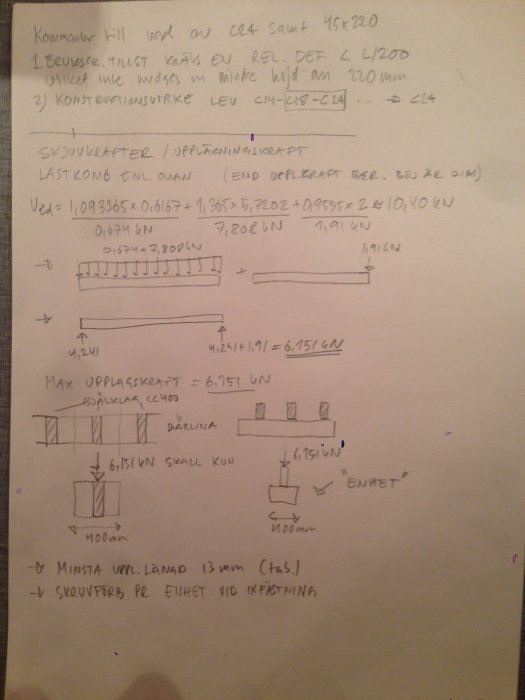 Kommentar till val av C24 samt 45x220
1. BRUKSGR. TILLST KRÄVS EN REL. DEF < L/200
vilket inte medges vi mindre höjd än 220mm
2) KONSTRUKTIONSVIRKE LEV C14-C18-C24 .. → C24
SKJUVKRAFTER / UPPLAGNINGSKRAFT
LASTKOMB ENL. OVAN (END UPPL.KRAFT BER. BEJ ÄR DIM)
VEd= 1,093365x0,6167 + 1,365x5,7202 + 0,9555x2 ≈ 10,40 kN
0,674 kN 7,808 kN 1,91 kN
0,674+7,808 kN 1,91 kN
+
4,241 4,241+1,91 = 6,151 kN
MAX UPPLAGSKRAFT = 6,151 kN
BJÄLKLAG, CC400
BÄRLINA
6,151 kN SKALL KUN 6,151 kN
"ENHET"
400mm 400mm
→ MINSTA UPPL. LÄNGD 13 mm (tab.)
→ SKRUVFÖRB PR ENHET VID INFÄSTNING